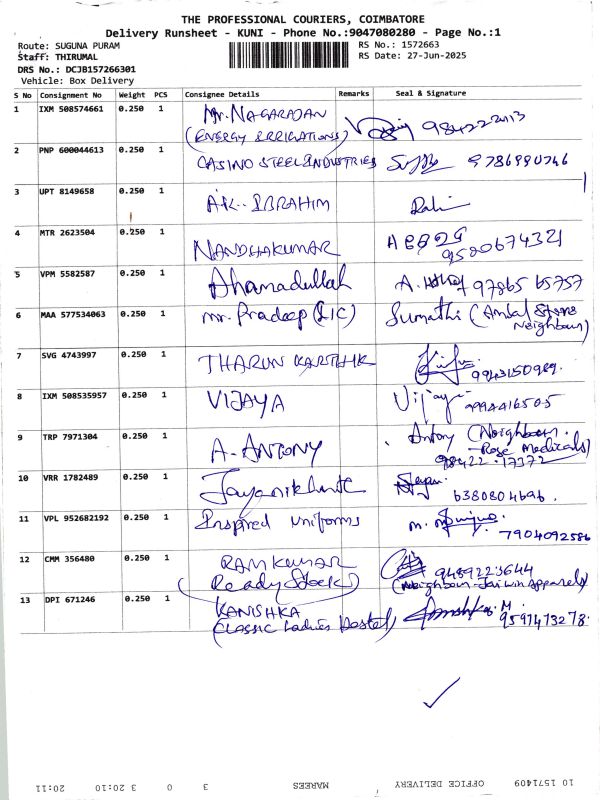 THE PROFESSIONAL COURIERS, COIMBATORE
Delivery Runsheet - KUNI - Phone No.:9047080280 - Page No.:1
Route: SUGUNA PURAM RS No.: 1572663
Staff: THIRUMAL RS Date: 27-Jun-2025
DRS No.: DCJB157266301
Vehicle: Box Delivery
S No Consignment No Weight PCS Consignee Details Remarks Seal & Signature
1 IXM 508574661 0.250 1 Mr. NAGARAJAN
(ENERGY IRRIGATIONS)
2 PNP 600044613 0.250 1 CASINO STEEL INDUSTRIES 9786990746
3 UPT 8149658 0.250 1 A.K. IBRAHIM
4 MTR 2623504 0.250 1 NANDHAKUMAR 9500674321
5 VPM 5582587 0.250 1 Ahamadullah 97865 65757
6 MAA 577534063 0.250 1 Mr. Pradeep (LIC) Sumathi (Ambal Store
Neighbour)
7 SVG 4743997 0.250 1 THARUN KARTHIK 9943150989.
8 IXM 508535957 0.250 1 VIJAYA Vijaya 9994416505
9 TRP 7971304 0.250 1 A. ANTONY Antony (Neighbour.
Rose Medicals)
98422 17372
10 VRR 1782489 0.250 1 6380804696.
11 VPL 952682192 0.250 1 Inspired uniforms 7904092586
12 CMM 356480 0.250 1 RAMKUMAR 9489223644
(Ready Stocks) (Neighbour-Jaiwin apparels)
13 DPI 671246 0.250 1 KANISHKA
(Classic Ladies Hostel) 9597473278.
10 1571409 OFFICE DELIVERY MAREES 3 0 3 20:10 20:11